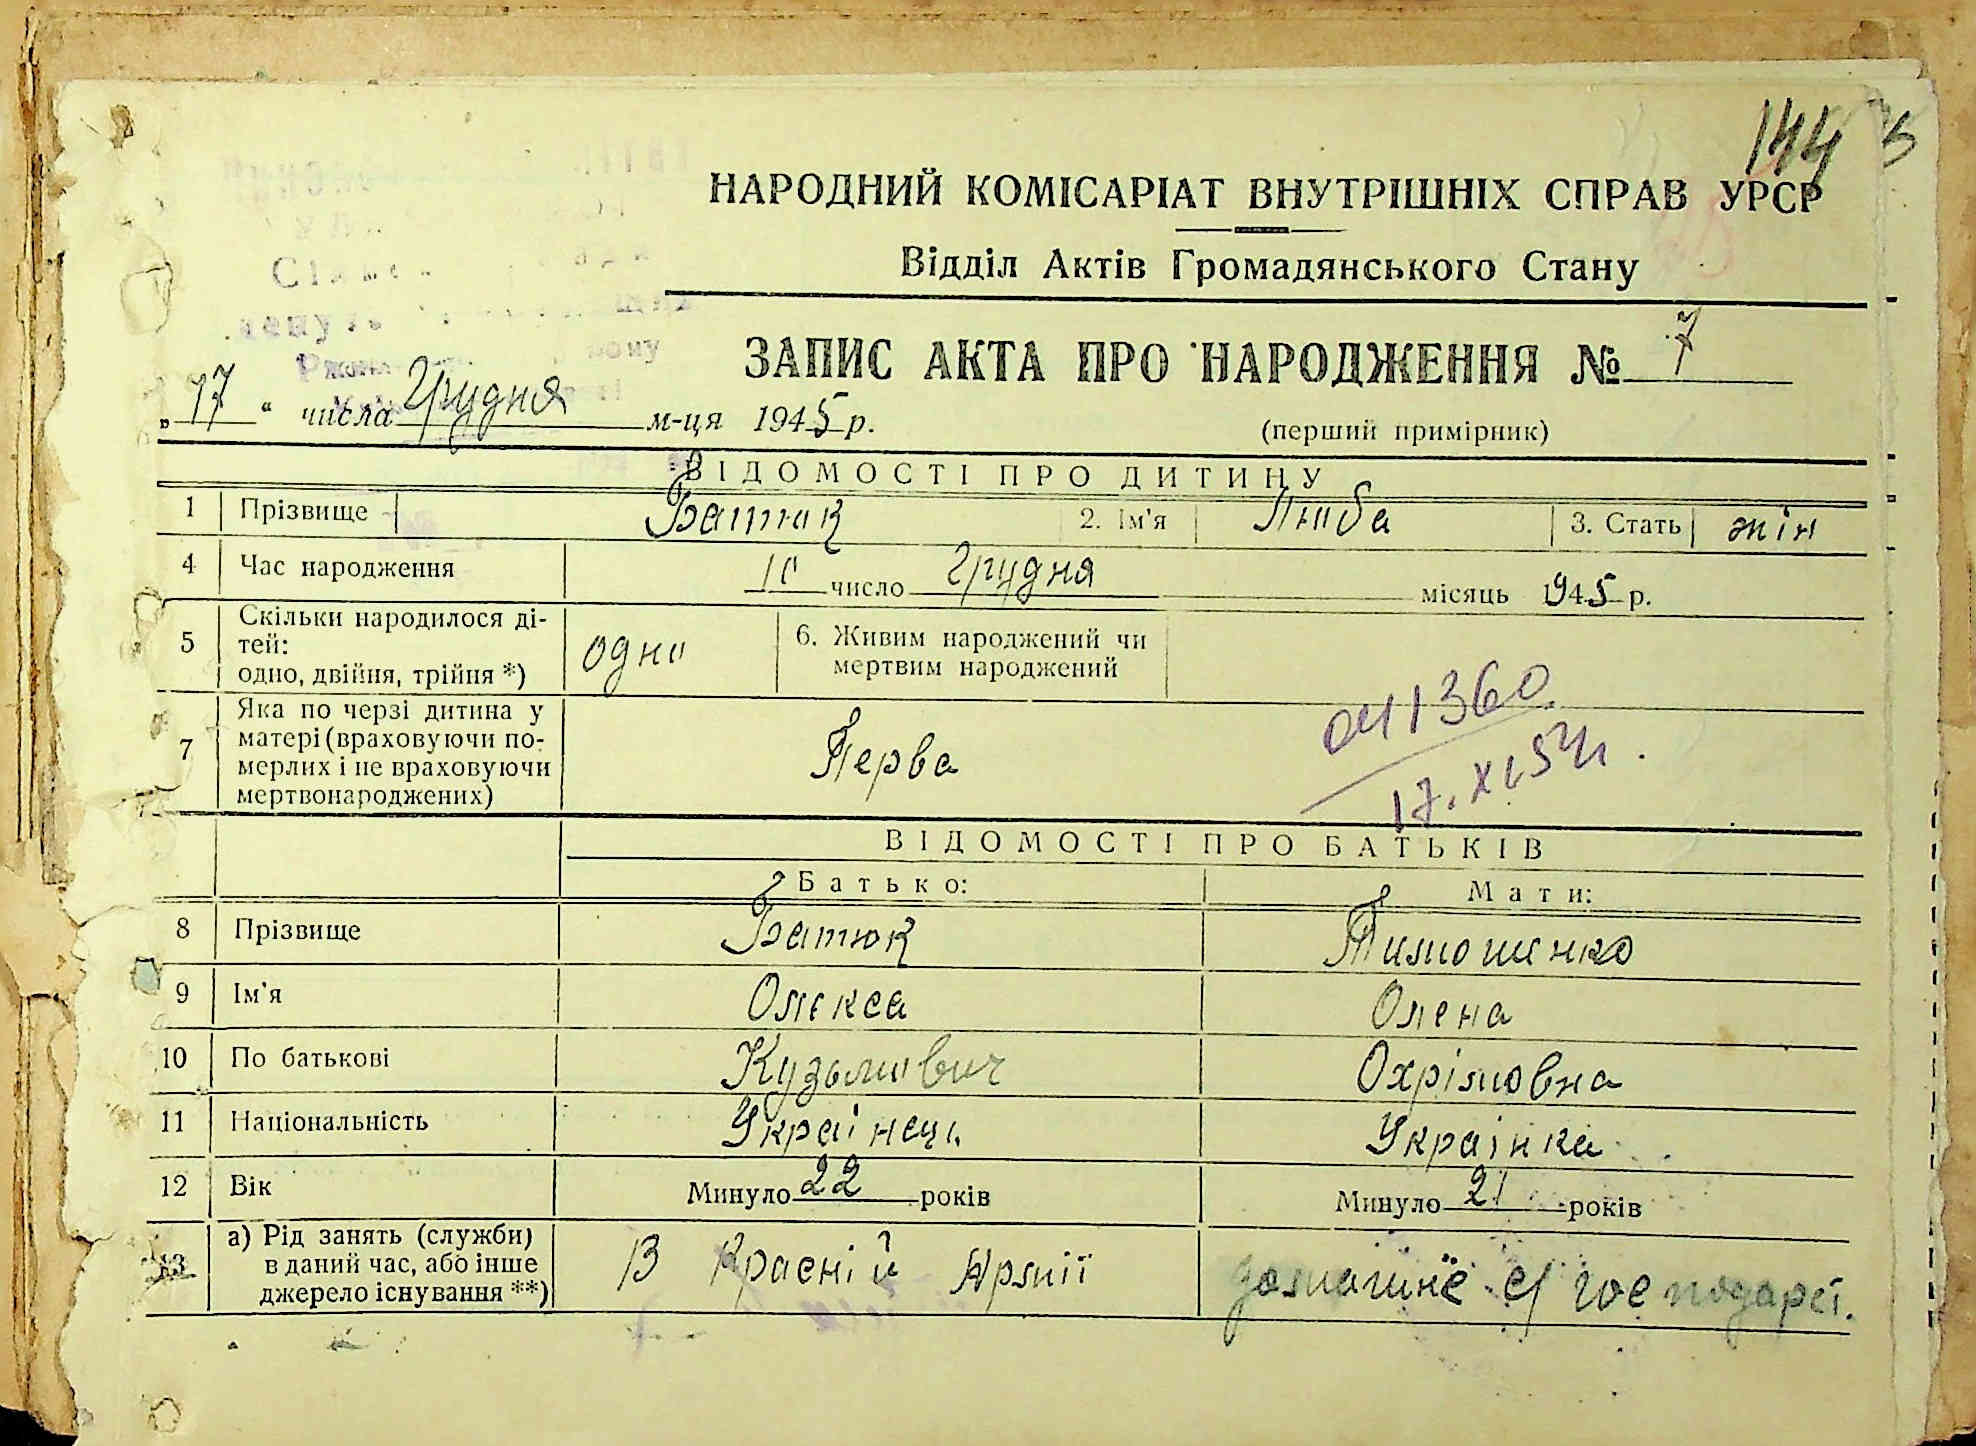 144
НАРОДНИЙ КОМІСАРІАТ ВНУТРІШНІХ СПРАВ УРСР
Відділ Актів Громадянського Стану
ЗАПИС АКТА ПРО НАРОДЖЕННЯ № 7
„ 17 “ числа Грудня м-ця 1945 р.
(перший примірник)
ВІДОМОСТІ ПРО ДИТИНУ
1 Прізвище Батюк 2. Ім'я Люба 3. Стать жін
4 Час народження 10 число Грудня місяць 1945 р.
5 Скільки народилося ді-
тей:
одно, двійня, трійня *) одно 6. Живим народжений чи
мертвим народжений
7 Яка по черзі дитина у
матері (враховуючи по-
мерлих і не враховуючи
мертвонароджених) Перва
041360
17.XI.54
ВІДОМОСТІ ПРО БАТЬКІВ
Батько: Мати:
8 Прізвище Батюк Тимошинко
9 Ім'я Олекса Олена
10 По батькові Кузьмович Охрімовна
11 Національність Українець Українка
12 Вік Минуло 22 років Минуло 21 років
13 а) Рід занять (служби)
в даний час, або інше
джерело існування **) В Красній Армії домашнє с/ господарсі.